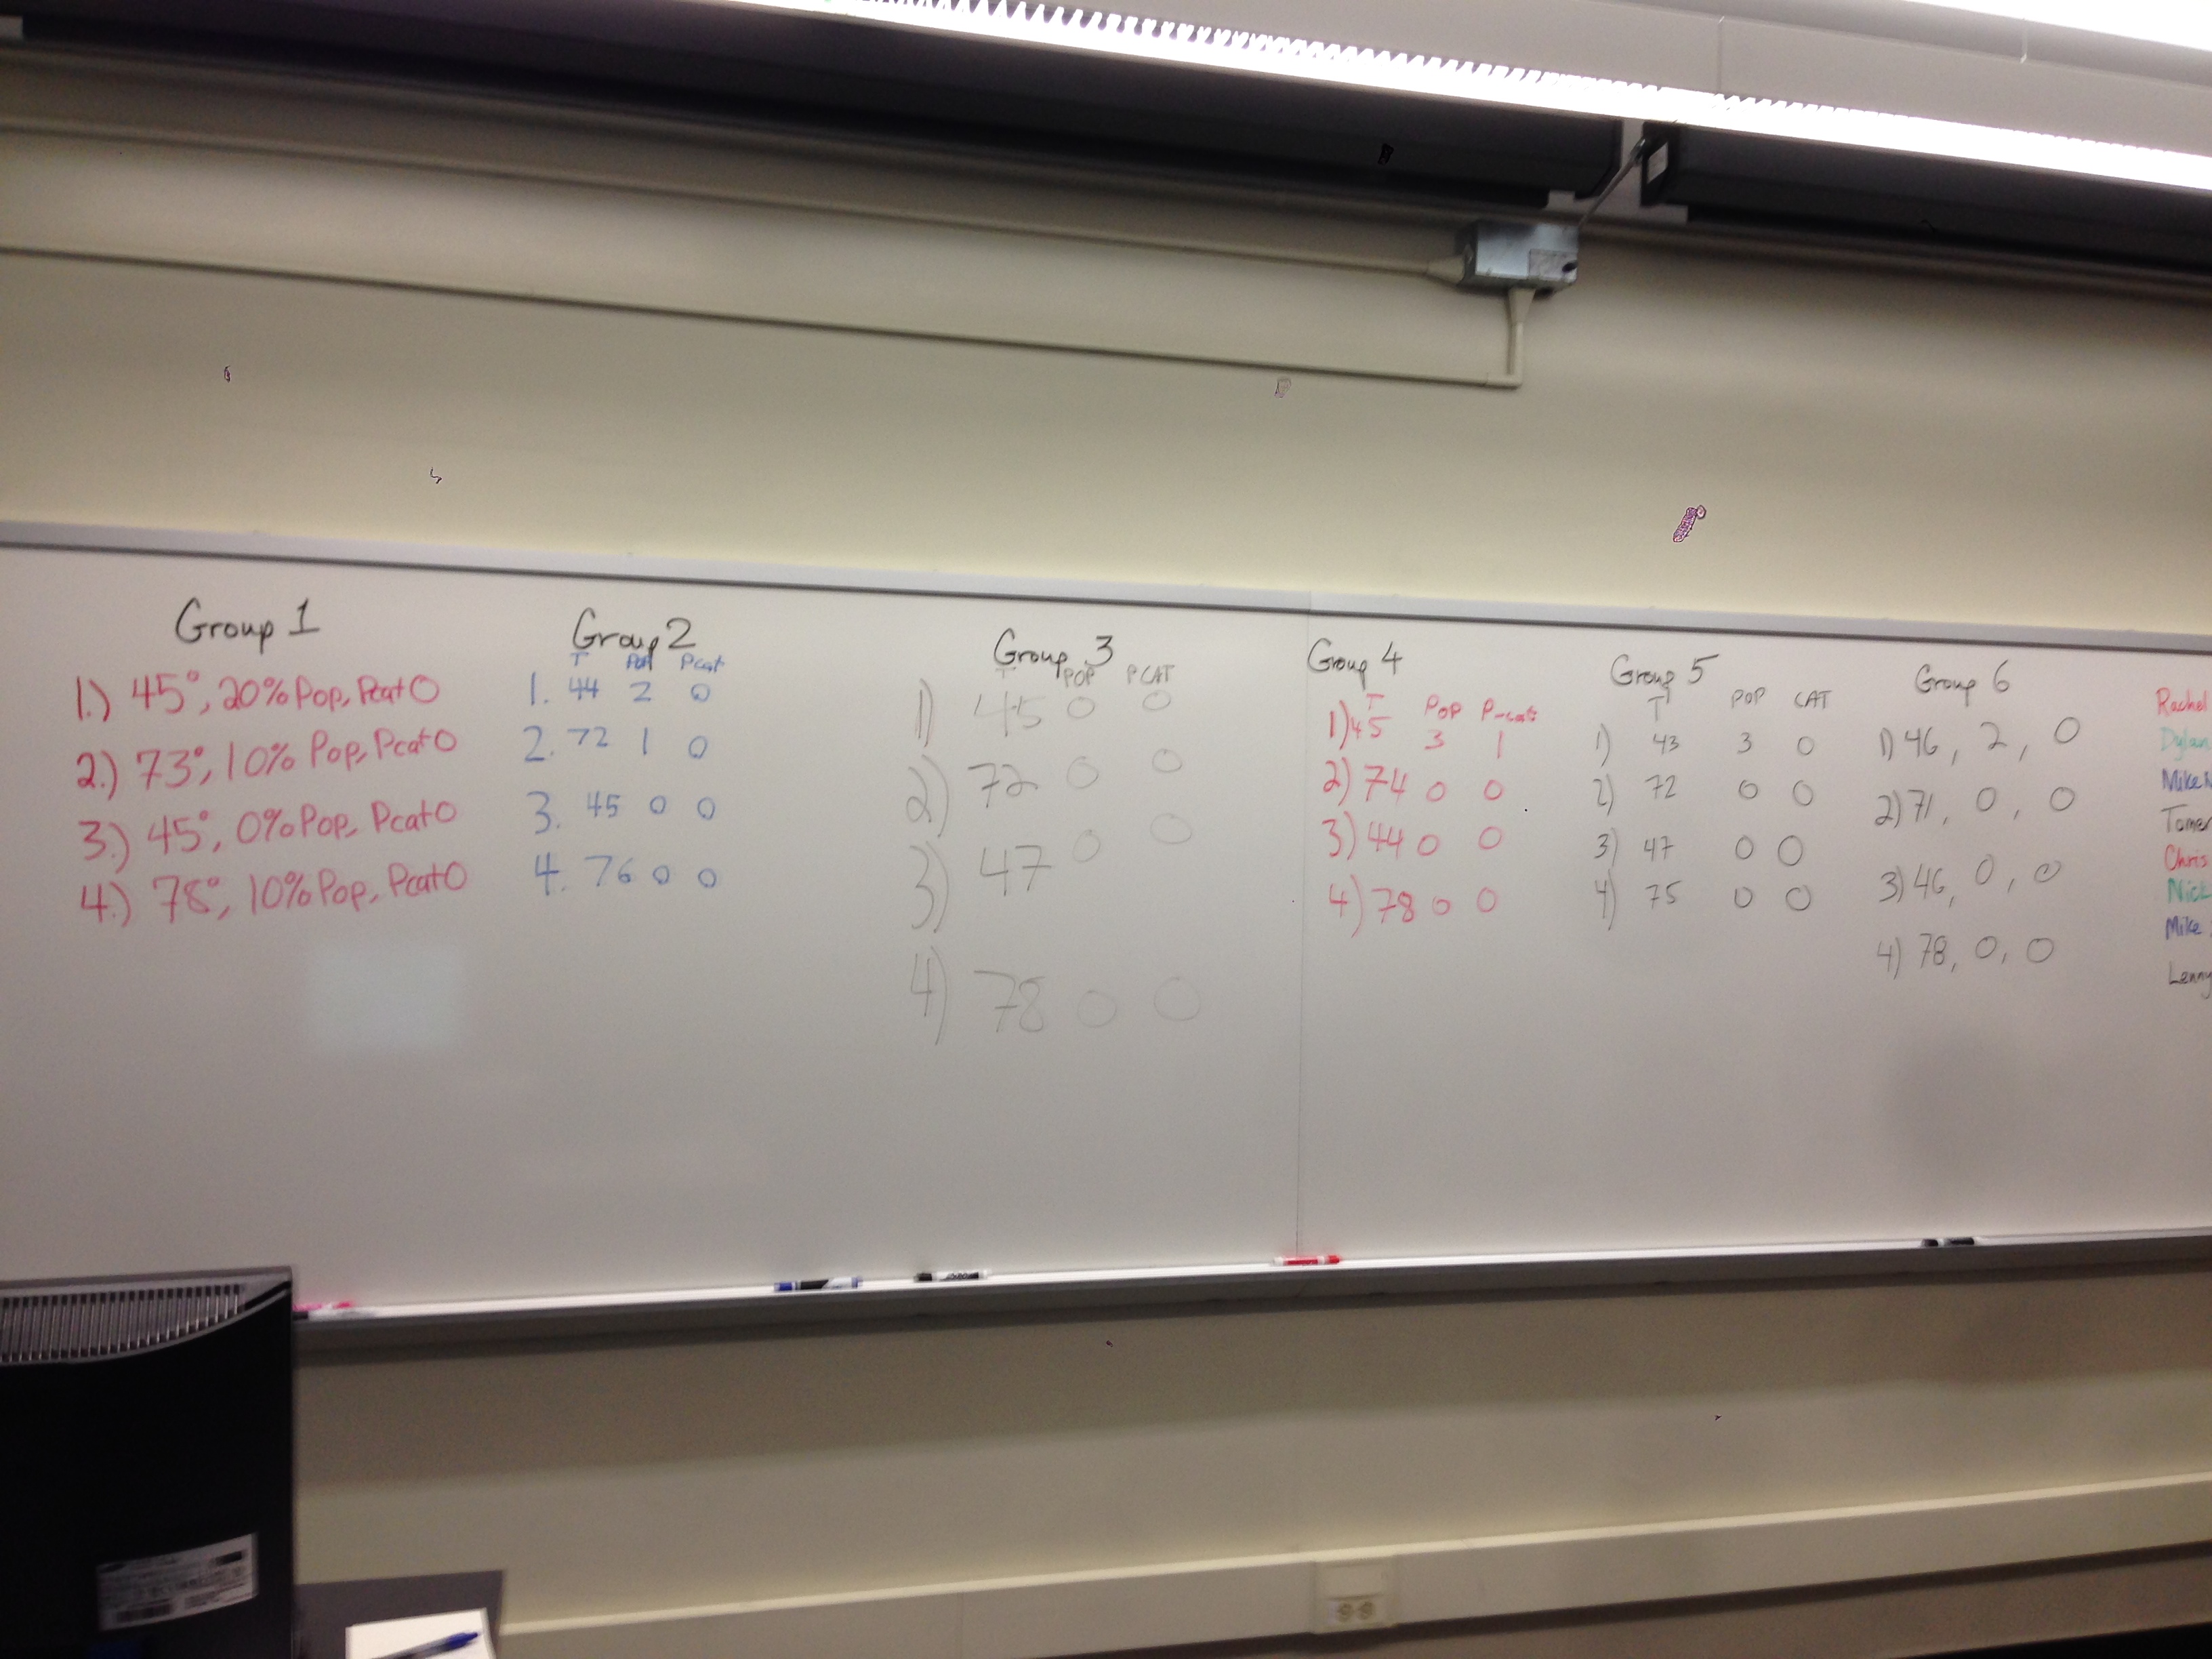 Group 1
1.) 45°, 20% Pop, Pcat 0
2.) 73°, 10% Pop, Pcat 0
3.) 45°, 0% Pop, Pcat 0
4.) 78°, 10% Pop, Pcat 0
Group 2
T POP Pcat
1. 44 2 0
2. 72 1 0
3. 45 0 0
4. 76 0 0
Group 3
T POP PCAT
1) 45 0 0
2) 72 0 0
3) 47 0 0
4) 78 0 0
Group 4
T POP P-cat
1) 45 3 1
2) 74 0 0
3) 44 0 0
4) 78 0 0
Group 5
T POP CAT
1) 43 3 0
2) 72 0 0
3) 47 0 0
4) 75 0 0
Group 6
1) 46, 2, 0
2) 71, 0, 0
3) 46, 0, 0
4) 78, 0, 0
Rachel
Dylan
Mike
Tomer
Chris
Nick
Mike
Lenny